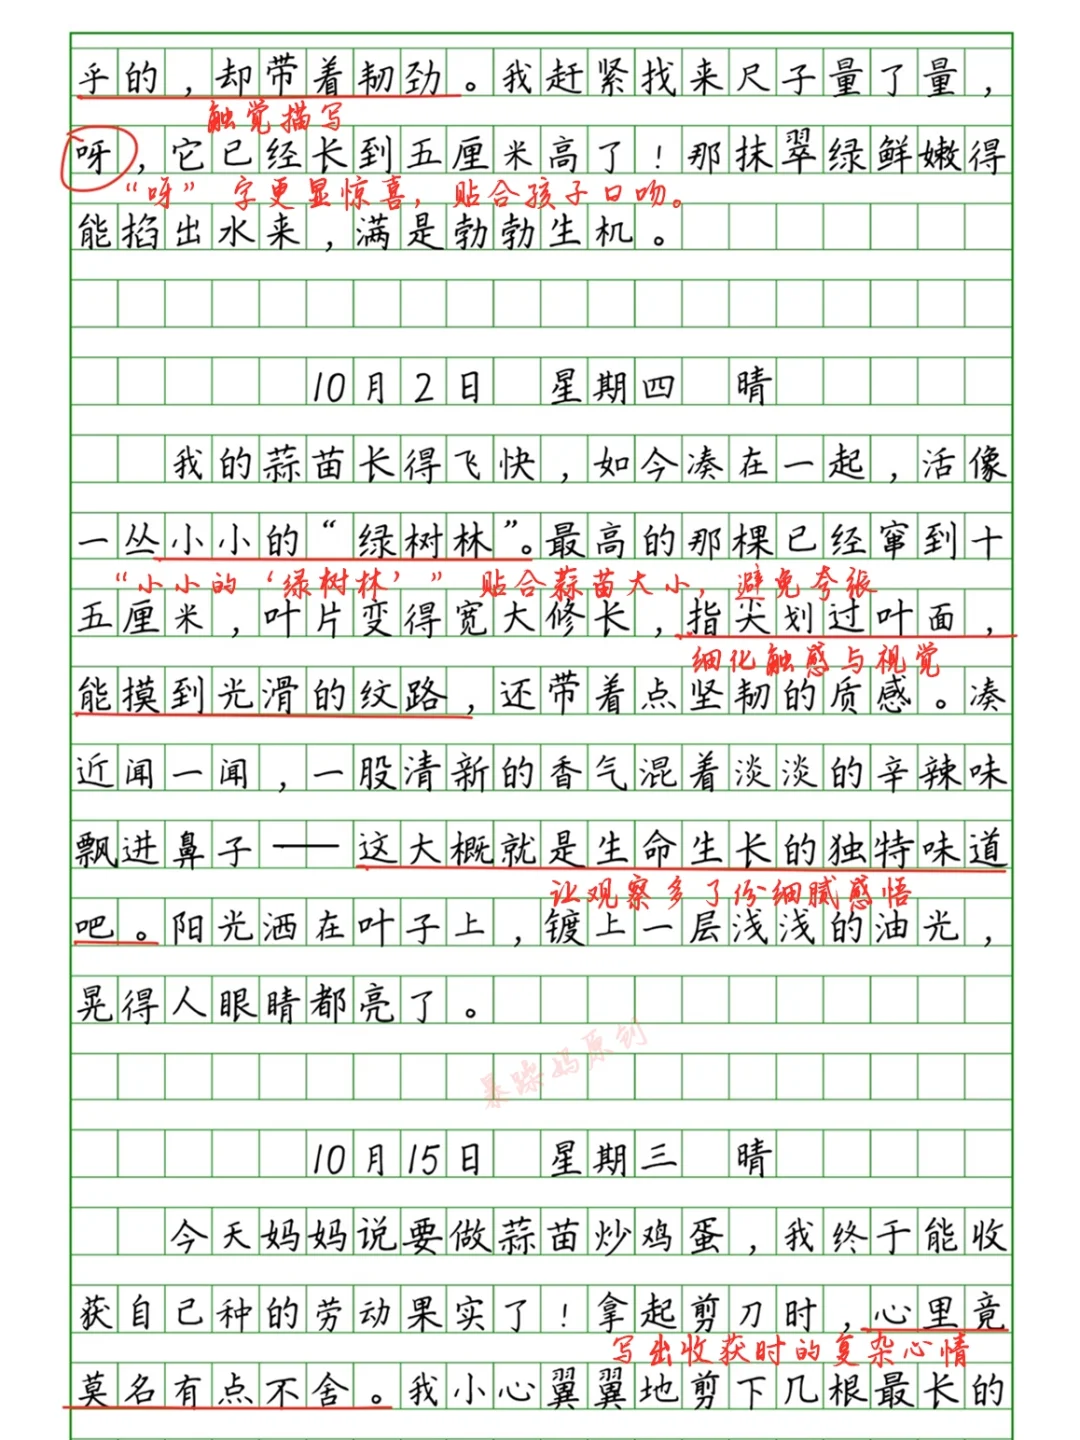 乎的，却带着韧劲。我赶紧找来尺子量了量，
触觉描写
呀，它已经长到五厘米高了！那抹翠绿鲜嫩得
“呀”字更显惊喜，贴合孩子口吻。
能掐出水来，满是勃勃生机。
10月2日 星期四 晴
我的蒜苗长得飞快，如今凑在一起，活像
一丛小小的“绿树林”。最高的那棵已经窜到十
“小小的‘绿树林’”贴合蒜苗大小，避免夸张
五厘米，叶片变得宽大修长，指尖划过叶面，
细化触感与视觉
能摸到光滑的纹路，还带着点坚韧的质感。凑
近闻一闻，一股清新的香气混着淡淡的辛辣味
飘进鼻子——这大概就是生命生长的独特味道
让观察多了份细腻感悟
吧。阳光洒在叶子上，镀上一层浅浅的油光，
晃得人眼睛都亮了。
暴躁妈原创
10月15日 星期三 晴
今天妈妈说要做蒜苗炒鸡蛋，我终于能收
获自己种的劳动果实了！拿起剪刀时，心里竟
写出收获时的复杂心情
莫名有点不舍。我小心翼翼地剪下几根最长的